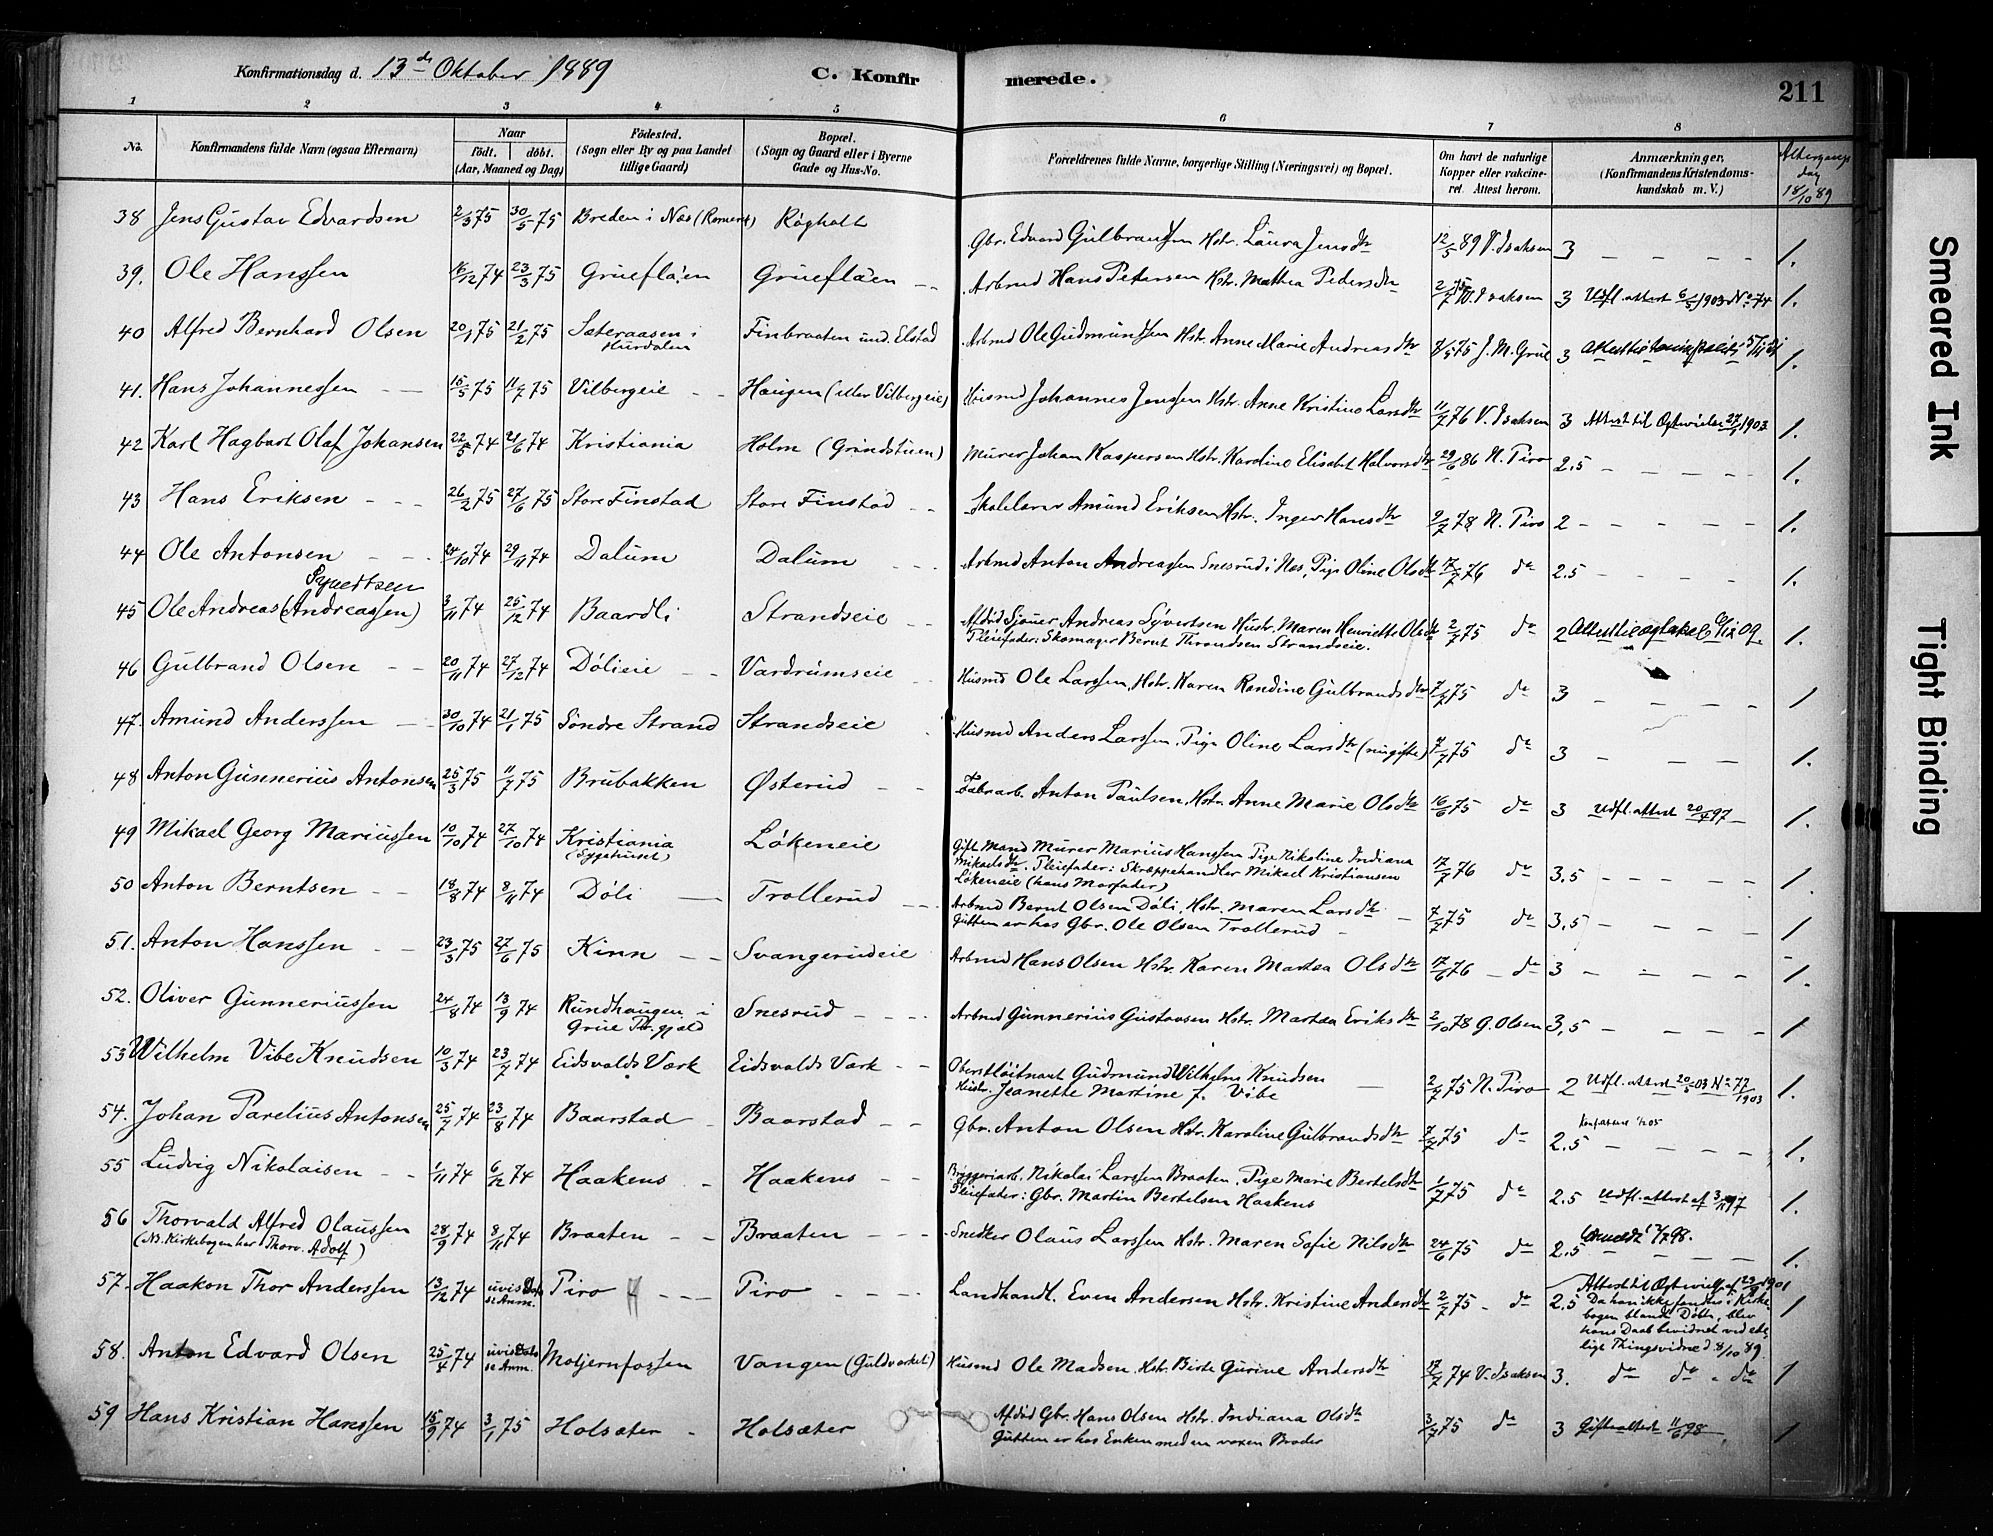 Konfirmationsdag d. 13de Oktober 1889 C. Konfirmerede. 211
1 2 3 4 5 6 7 8
No. Konfirmandens fulde Navn (ogsaa Efternavn) Naar födt. döbt. (Aar, Maaned og Dag) Födested. (Sogn eller By og paa Landet tillige Gaard) Bopæl. (Sogn og Gaard eller i Byerne Gade og Hus-No. Forældrenes fulde Navne, borgerlige Stilling (Næringsvei) og Bopæl. Om havt de naturlige Kopper eller vakcineret. Attest herom. Anmærkninger, (Konfirmandens Kristendomskundskab m. V.) Altergangsdag 18/10 89
38 Jens Gustav Edvardsen 2/3 75 30/5 75 Breden i Næs (Romerik) Røgholt Gbr. Edvard Gulbrandsen Hstr. Laura Jensdtr 12/5 89 V. Isaksen 3 — — — — 1.
39. Ole Hanssen 16/12 74 23/3 75 Grueflåen Grueflåen Arbmd Hans Petersen Hstr. Mathea Pedersdtr 2/7 75 V. Isaksen 3 Udfl. attest 6/5 1903 No 74 1.
40 Alfred Bernhard Olsen 20/1 75 21/2 75 Sæteraasen i Hurdalen Finbraaten und. Elstad Arbmd Ole Gudmundsen Hstr. Anne Marie Andreasdtr 7/5 75 J. M. Grue 3 1.
41. Hans Johannessen 15/5 75 11/7 75 Vilbergeie Haugen (eller Vilbergeie) Husmd Johannes Jenssen Hstr. Anne Kristine Larsdtr 11/7 76 V. Isaksen 3 Attest til Ægtevielse 27/1 1903 1.
42 Karl Hagbart Olaf Johansen 22/5 74 21/6 74 Kristiania Holm (Grindstuen) Murer Johan Kaspersen Hstr. Karoline Elisabet Halvorsdtr 29/6 86 N. Piro 2.5 — — — — 1.
43 Hans Eriksen 26/2 75 27/6 75 Store Finstad Store Finstad Skolelærer Amund Eriksen Hstr. Inger Hansdtr 9/7 78 N. Piro 2 — — — — 1.
44 Ole Antonsen 24/10 74 29/11 74 Dalum Dalum Arbmd Anton Andreassen Snesrud i Nes, Pige Oline Olsdtr 17/7 76 do 2.5 — — — — 1.
Syvertsen
45 Ole Andreas (Andreassen) 3/11 74 25/12 74 Baardli Strandseie Afdöd Sjöuer Andreas Syvertsen Hustr. Maren Henriette Olsdtr 2/7 75 do 2 1.
Pleiefader: Skomager Bernt Throndsen Strandseie.
46 Gulbrand Olsen 20/11 74 27/12 74 Dölieie Vardrumseie Husmd Ole Larssen, Hstr. Karen Randine Gulbrandsdtr 7/7 75 do 3 — — — — 1
47. Amund Anderssen 30/10 74 21/1 75 Söndre Strand Strandseie Husmd Anders Larssen, Pige Oline Larsdtr (nu gifte) 7/7 75 do 3 — — — 1.
48 Anton Gunnerius Antonsen 25/3 75 11/7 75 Brubakken Østerud Fabrarb. Anton Paulsen, Hstr. Anne Marie Olsdtr 16/6 75 do 3 Udfl. attest 20/4 97 1.
49 Mikael Georg Mariussen 10/10 74 27/10 74 Kristiania (Sygehuset) Løkeneie Gift Mand Murer Marius Hanssen Pige Nikoline Indiana
Mikaelsdtr. Pleiefader: Skræppehandler Mikael Kristiansen 17/7 76 do 3.5 — — — — 1
Løkeneie (hans Morfader)
50 Anton Berntsen 18/8 74 8/11 74 Döli Trollerud Arbmd Bernt Olsen Döli, Hstr. Maren Larsdtr 7/7 75 do 3,5 — — — — 1
Gutten er hos Gbr. Ole Olsen Trollerud
51. Anton Hanssen 23/3 75 27/6 75 Kinn Svangerudeie Arbmd Hans Olsen Hstr. Karen Martea Olsdtr 17/6 76 do 3 — — — — 1.
52. Oliver Gunneriussen 24/8 74 13/9 74 Rundhaugen i Grue Pr.gjæld Snesrud Arbmd Gunnerius Gustavsen Hstr. Martea Eriksdtr 2/10 78 G. Olsen 3,5 — — — — 1
53 Wilhelm Vibe Knudsen 10/3 74 23/7 74 Eidsvolds Værk Eidsvolds Værk Oberstløitnant Gudmund Wilhelm Knudsen
Hustr. Jeanette Martine f. Vibe 2/7 75 N. Piro 2 Udfl. attest 20/5 03 No 77/1903 1.
54. Johan Parelius Antonsen 25/7 74 23/8 74 Baarstad Baarstad Gbr. Anton Olsen Hstr. Karoline Gulbrandsdtr 7/7 75 do 2.5 — — — — 1.
55 Ludvig Nikolaisen 1/11 74 6/12 74 Haakens Haakens Bryggeriarb. Nikolai Larssen Braaten, Pige Marie Bertelsdtr 1/7 75 do 2.5 Udfl. attest af 3/11 97 1.
Pleiefader: Gbr. Martin Bertelsen Haakens
56 Thorvald Alfred Olaussen 28/9 74 8/11 74 Braaten Braaten Snedker Olaus Larssen Hstr. Maren Sofie Nilsdtr 24/6 75 do 2.5 — — — — 1.
(NB. Kirkebogen har Thorv. Adolf)
57. Haakon Thor Anderssen 13/12 74 uvis Dato se Anm. Piro Piro Landhandl. Even Andersen Hstr. Kristine Andersdtr 2/7 75 do 2.5 Attest til Ægteviels. af 23/9 1901 1
Da han ikke fandtes i Kirkebogen blandt Döbte, blev
hans Daab bevidnet ved edelige Thingsvidne d. 8/10 89.
58. Anton Edvard Olsen 25/4 74 uvis Dato se Anm. Motjernfossen Vangen (Guldverket) Husmd Ole Madsen, Hstr. Birte Gurine Andersdtr 17/7 74 V. Isaksen 3. do do do 1
59 Hans Kristian Hanssen 15/9 74 3/1 75 Holsæter Holsæter Afdöd Gbr. Hans Olsen Hstr. Indiana Olsdtr 3/7 75 do 3 Gifteattest 11/6 98 1
Gutten er hos Enken med en voxen Broder
Smeared Ink
Tight Binding